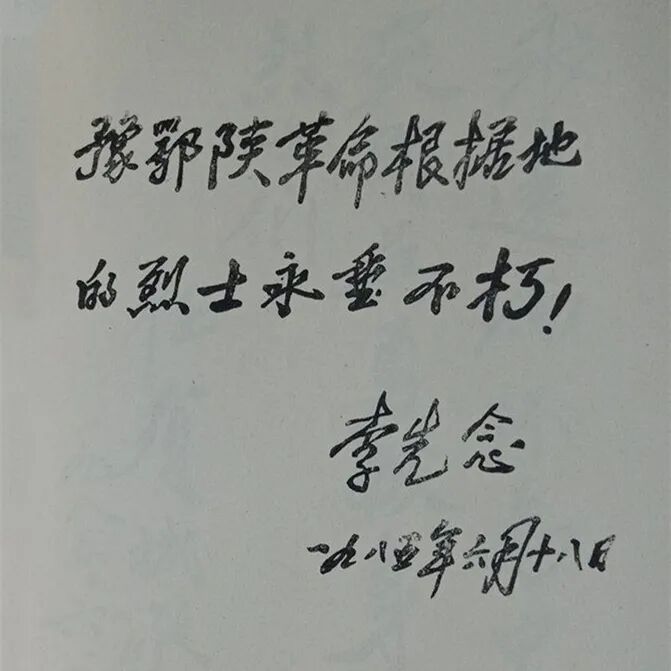 豫鄂陕革命根据地
的烈士永垂不朽！
李先念
一九八五年六月十八日